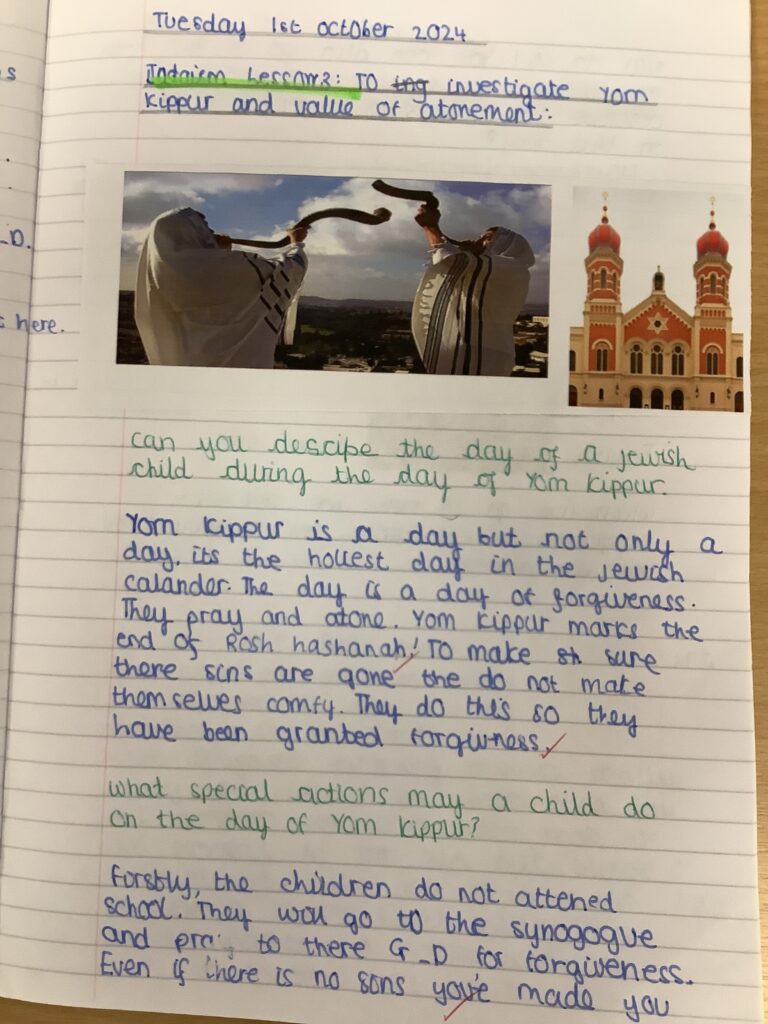 s
.
.
_D.
s here.
Tuesday 1st october 2024
Judaism Lesson 3: TO investigate Yom
Kippur and value of atonement:
can you descibe the day of a jewish
child during the day of Yom Kippur.
Yom Kippur is a day but not only a
day, its the holiest day in the Jewish
calander. The day is a day of forgiveness.
They pray and atone. Yom Kippur marks the
end of Rosh hashanah! TO make sh sure
there sins are gone the do not make
themselves comfy. They do this so they
have been granted forgivness.
what special actions may a child do
on the day of Yom Kippur?
Forstly, the children do not attened
school. They woul go to the synogogue
and to there G_D for forgiveness.
Even if there is no sons you've made you